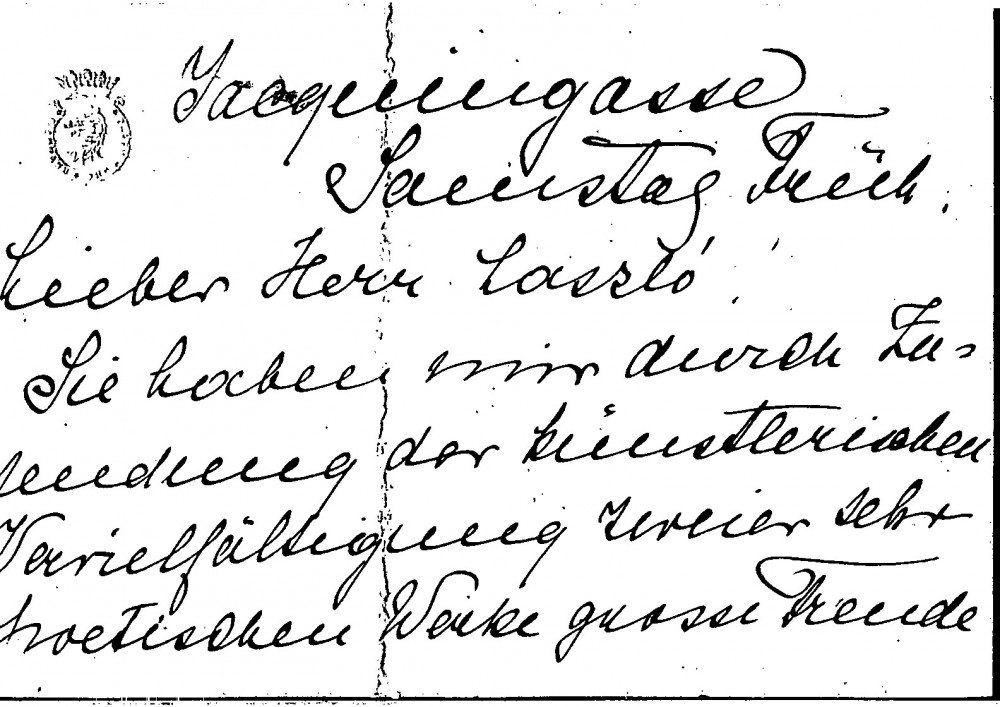 Jacquingasse
Samstag Früh.
Lieber Herr László!
Sie haben mir durch Zu-
sendung der künstlerischen
Vervielfältigung zweier sehr
poetischen Werke grosse Freude